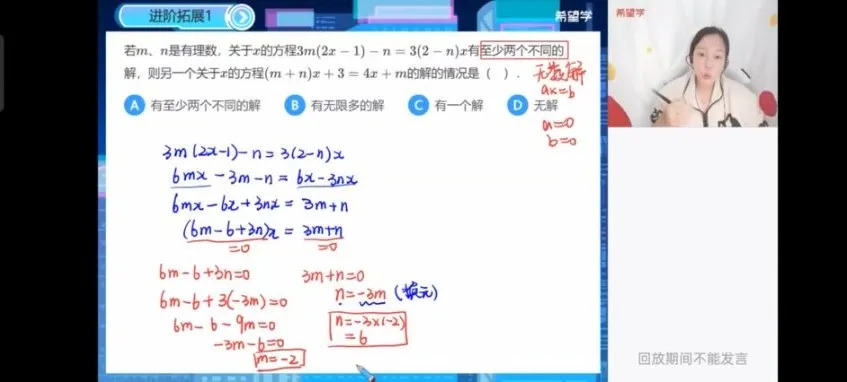 进阶拓展1
希望学
希望学
若m、n是有理数，关于x的方程3m(2x－1)－n＝3(2－n)x有至少两个不同的
解，则另一个关于x的方程(m＋n)x＋3＝4x＋m的解的情况是（　）．
无数解
ax=b
A 有至少两个不同的解 B 有无限多的解 C 有一个解 D 无解
a=0
b=0
3m(2x-1)-n=3(2-n)x
6mx-3m-n=6x-3nx
6mx-6x+3nx=3m+n
(6m-6+3n)x=3m+n
=0 =0
6m-6+3n=0 3m+n=0
n=-3m (换元)
6m-6+3(-3m)=0
n=-3×(-2)
6m-6-9m=0
=6
-3m-6=0
m=-2
回放期间不能发言